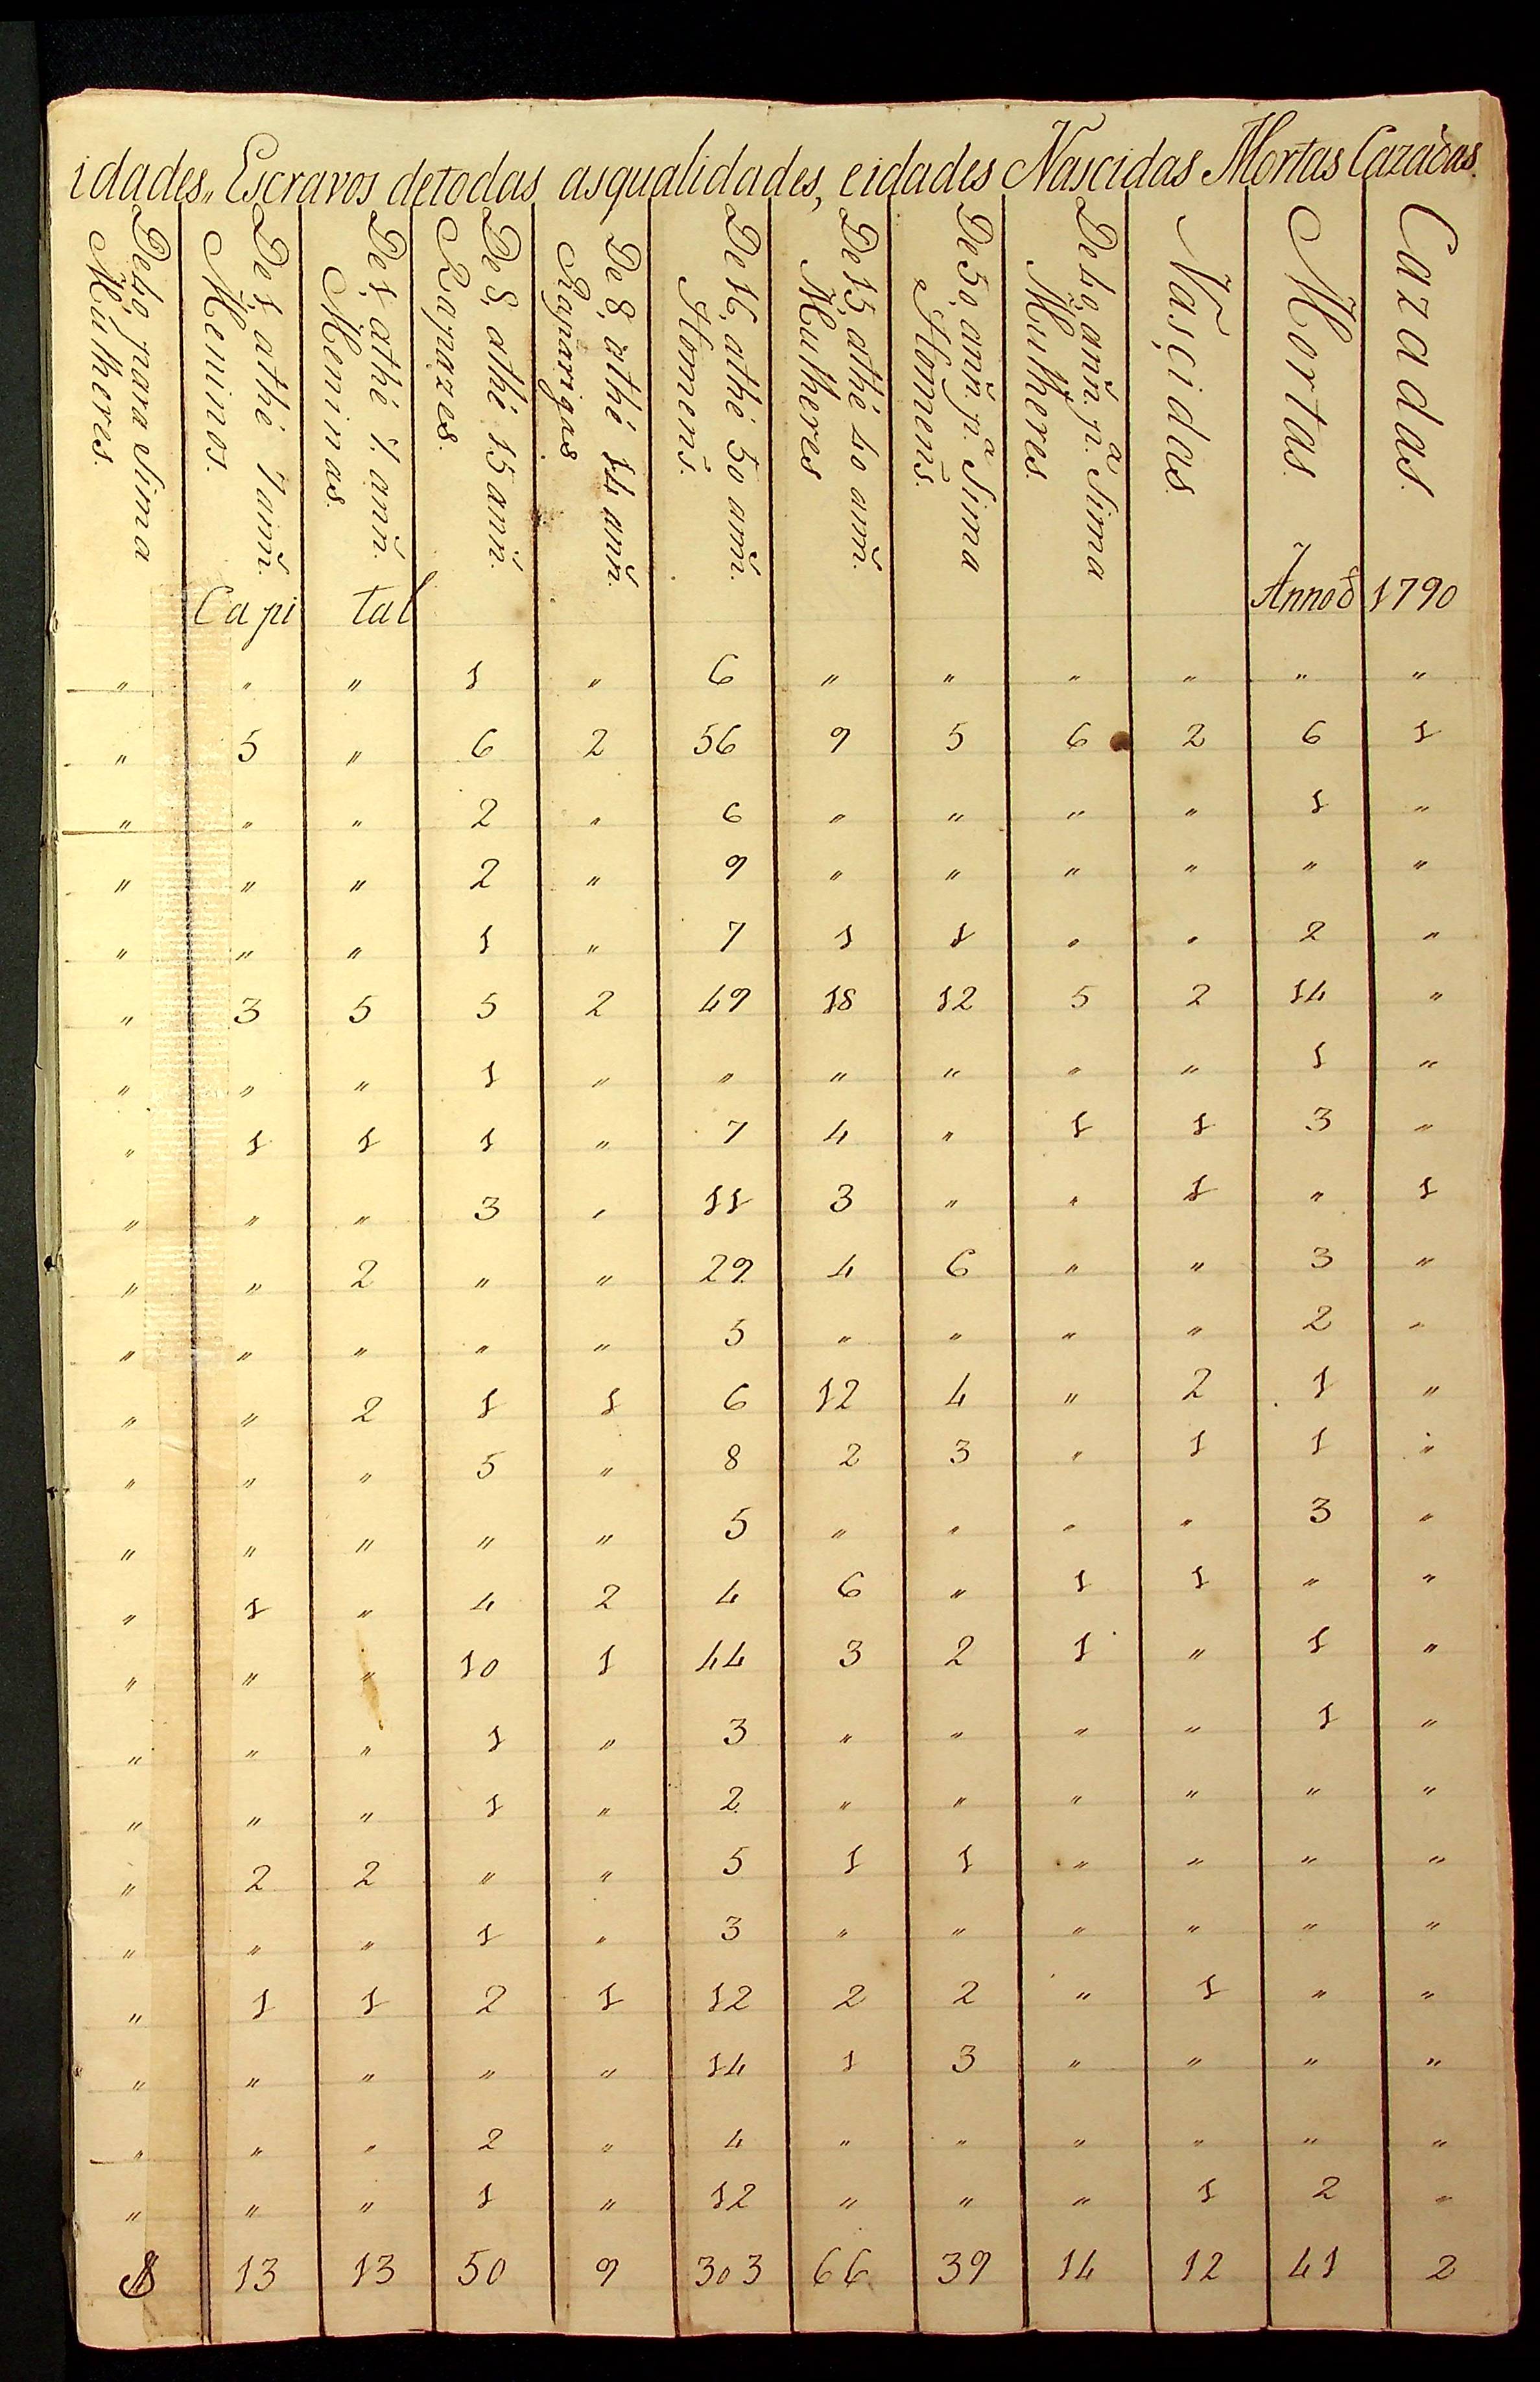 idades,, Escravos detodas asqualidades, eidades Nascidas Mortas Cazadas.
De 40, para Sima Mulheres.
De 1, athé 7 anñ. Meninos.
De 1, athé 7. anñ. Meninas.
De 8, athé 15 anñ. Rapazes.
De 8, athé 14 anñ. Raparigas.
De 16, athé 50 anñ. Homens.
De 15, athé 40 anñ. Mulheres
De 50, anñ. pª. Sima Homens.
De 40, anñ. pª. Sima Mulheres.
Nascidas
Mortas.
Cazadas.
Capi tal Anno 1790
" " " 1 " 6 " " " " " "
" 5 " 6 2 56 9 5 6 2 6 1
" " " 2 " 6 " " " " 1 "
" " " 2 " 9 " " " " " "
" " " 1 " 7 1 1 " " 2 "
" 3 5 5 2 49 18 12 5 2 14 "
" " " 1 " " " " " " 1 "
" 1 1 1 " 7 4 " 1 1 3 "
" " " 3 " 11 3 " " 1 " 1
" " 2 " " 29 4 6 " " 3 "
" " " " " 5 " " " " 2 "
" " 2 1 1 6 12 4 " 2 1 "
" " " 5 " 8 2 3 " 1 1 "
" " " " " 5 " " " " 3 "
" 1 " 4 2 4 6 " 1 1 " "
" " " 10 1 44 3 2 1 " 1 "
" " " 1 " 3 " " " " 1 "
" " " 1 " 2 " " " " " "
" 2 2 " " 5 1 1 " " " "
" " " 1 " 3 " " " " " "
" 1 1 2 1 12 2 2 " 1 " "
" " " " " 14 1 3 " " " "
" " " 2 " 4 " " " " " "
" " " 1 " 12 " " " 1 2 "
13 13 50 9 303 66 39 14 12 41 2